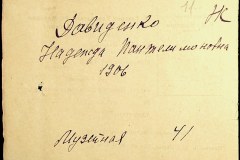 11 Ж
Давиденко
Надежда Пантелимоновна
1906
Музейная 41